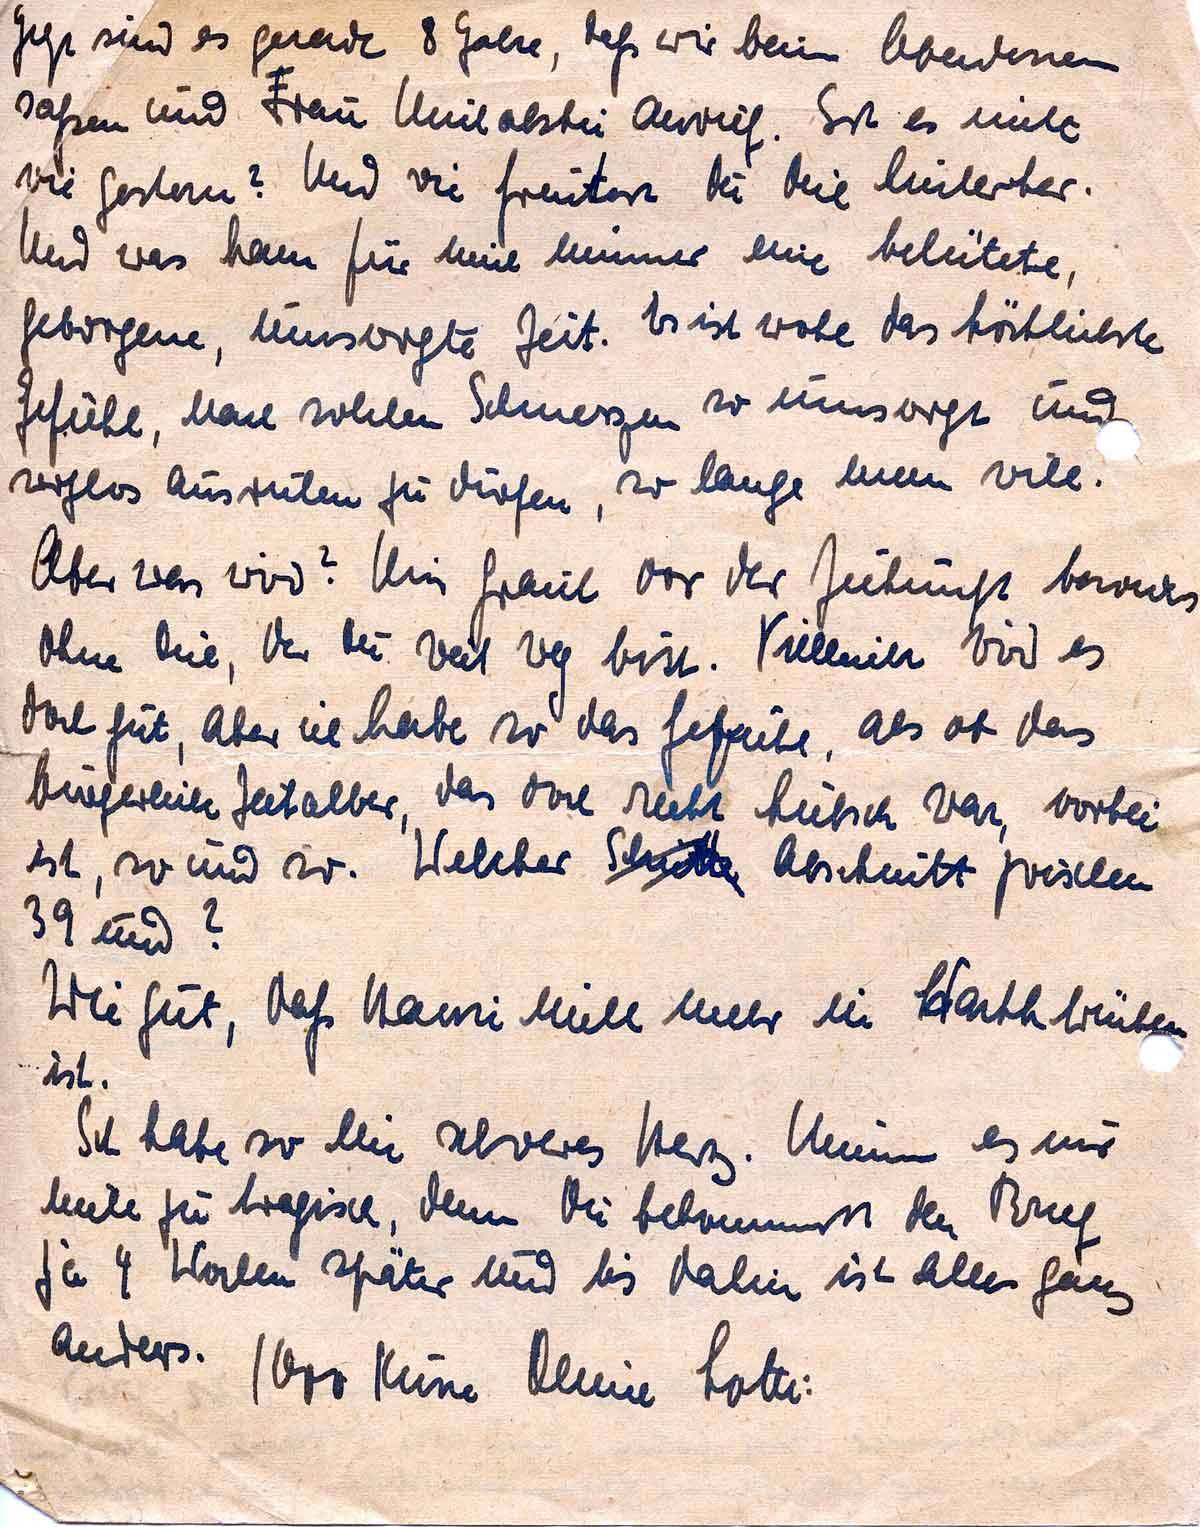 Jetzt sind es gerade 8 Jahre, daß wir beim Abendessen
saßen und Frau anrief. Ist es nicht
wie gestern? Und wie freutest Du Dich hinterher.
Und was kam für mich immer eine behütete,
geborgene, umsorgte Zeit. Es ist wohl das köstlichste
Gefühl, nach solchen Schmerzen so umsorgt und
sorglos ausruhen zu dürfen, so lange man will.
Aber was wird? Mir graut vor der Zukunft besonders
ohne Dich, der Du weit weg bist. Vielleicht wird es
doch gut, aber ich habe so das Gefühl, als ob das
bürgerliche Zeitalter, das doch recht hübsch war, vorbei
ist, so und so. Welcher Abschnitt zwischen
39 und ?
Wie gut, daß Hansi nicht mehr in
ist.
Ich habe so ein schweres Herz. Nimm es nur
nicht zu tragisch, denn Du bekommst den Brief
ja 4 Wochen später und bis dahin ist alles ganz
anders. 1000 Küsse Deine Lotti